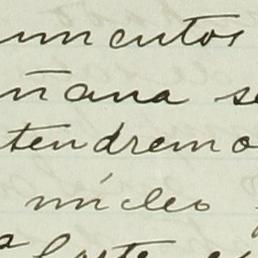 umentos
ñana se
tendremo
núcleo